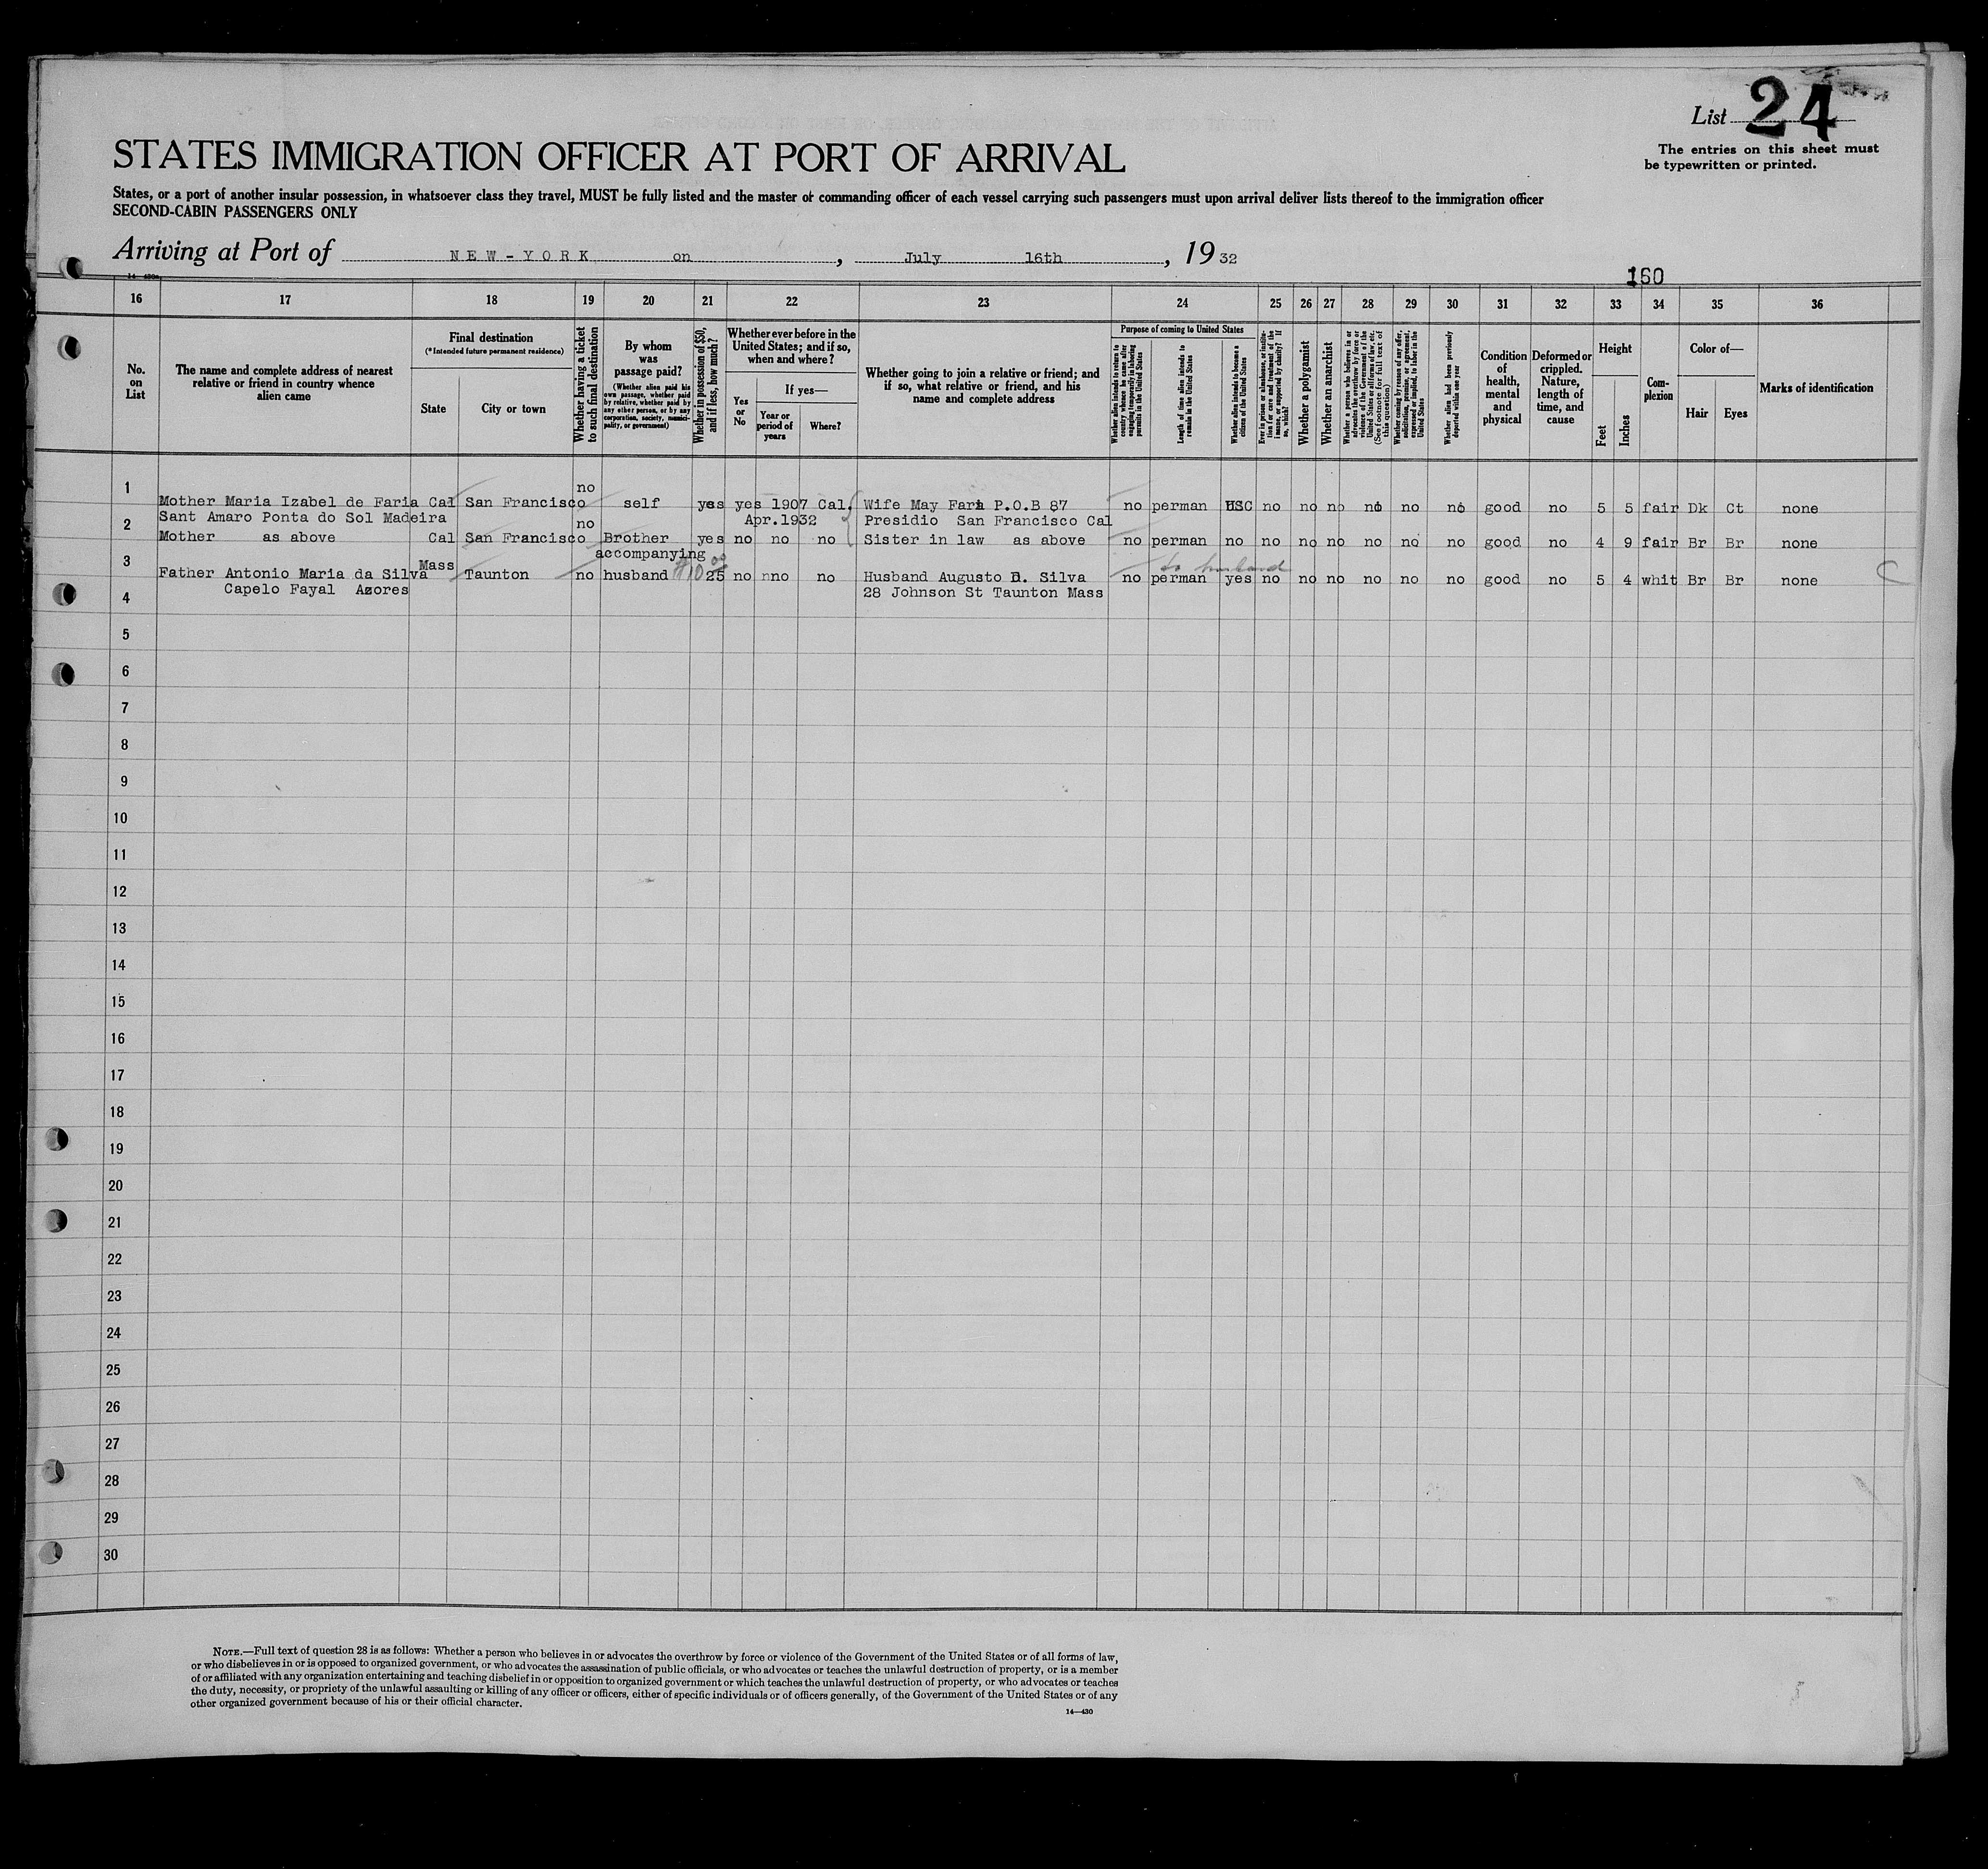 List 24
The entries on this sheet must
be typewritten or printed.
STATES IMMIGRATION OFFICER AT PORT OF ARRIVAL
States, or a port of another insular possession, in whatsoever class they travel, MUST be fully listed and the master or commanding officer of each vessel carrying such passengers must upon arrival deliver lists thereof to the immigration officer
SECOND-CABIN PASSENGERS ONLY
Arriving at Port of NEW-YORK on , July 16th , 19 32
14-430a
160
16 17 18 19 20 21 22 23 24 25 26 27 28 29 30 31 32 33 34 35 36
No. on List
The name and complete address of nearest relative or friend in country whence alien came
Final destination
(*Intended future permanent residence)
State
City or town
Whether having a ticket to such final destination
By whom was passage paid?
(Whether alien paid his own passage, whether paid by relative, whether paid by any other person, or by any corporation, society, municipality, or government)
Whether in possession of $50, and if less, how much?
Whether ever before in the United States; and if so, when and where?
Yes or No
If yes—
Year or period of years
Where?
Whether going to join a relative or friend; and if so, what relative or friend, and his name and complete address
Purpose of coming to United States
Whether alien intends to return to country whence he came after engaging temporarily in laboring pursuits in the United States
Length of time alien intends to remain in the United States
Whether alien intends to become a citizen of the United States
Ever in prison or almshouse, or institution for care and treatment of the insane, or supported by charity? If so, which?
Whether a polygamist
Whether an anarchist
Whether a person who believes in or advocates the overthrow by force or violence of the Government of the United States or all forms of law, etc. (See footnote for full text of this question)
Whether coming by reason of any offer, solicitation, promise, or agreement, expressed or implied, to labor in the United States
Whether alien had been previously deported within one year
Condition of health, mental and physical
Deformed or crippled. Nature, length of time, and cause
Height
Feet
Inches
Complexion
Color of—
Hair
Eyes
Marks of identification
1 no
Mother Maria Izabel de Faria Cal San Francisco self yes yes 1907 Cal. Wife May Faria P.O.B 87 no perman USC no no no no no no good no 5 5 fair Dk Ct none
Sant Amaro Ponta do Sol Madeira Apr.1932 Presidio San Francisco Cal
2 no
Mother as above Cal San Francisco Brother yes no no no Sister in law as above no perman no no no no no no no good no 4 9 fair Br Br none
accompanying
3 Mass to husband
Father Antonio Maria da Silva Taunton no husband $10 00 25 no nno no Husband Augusto D. Silva no perman yes no no no no no no good no 5 4 whit Br Br none C
Capelo Fayal Azores 28 Johnson St Taunton Mass
4
5
6
7
8
9
10
11
12
13
14
15
16
17
18
19
20
21
22
23
24
25
26
27
28
29
30
NOTE.—Full text of question 28 is as follows: Whether a person who believes in or advocates the overthrow by force or violence of the Government of the United States or of all forms of law,
or who disbelieves in or is opposed to organized government, or who advocates the assassination of public officials, or who advocates or teaches the unlawful destruction of property, or is a member
of or affiliated with any organization entertaining and teaching disbelief in or opposition to organized government or which teaches the unlawful destruction of property, or who advocates or teaches
the duty, necessity, or propriety of the unlawful assaulting or killing of any officer or officers, either of specific individuals or of officers generally, of the Government of the United States or of any
other organized government because of his or their official character.
14—430